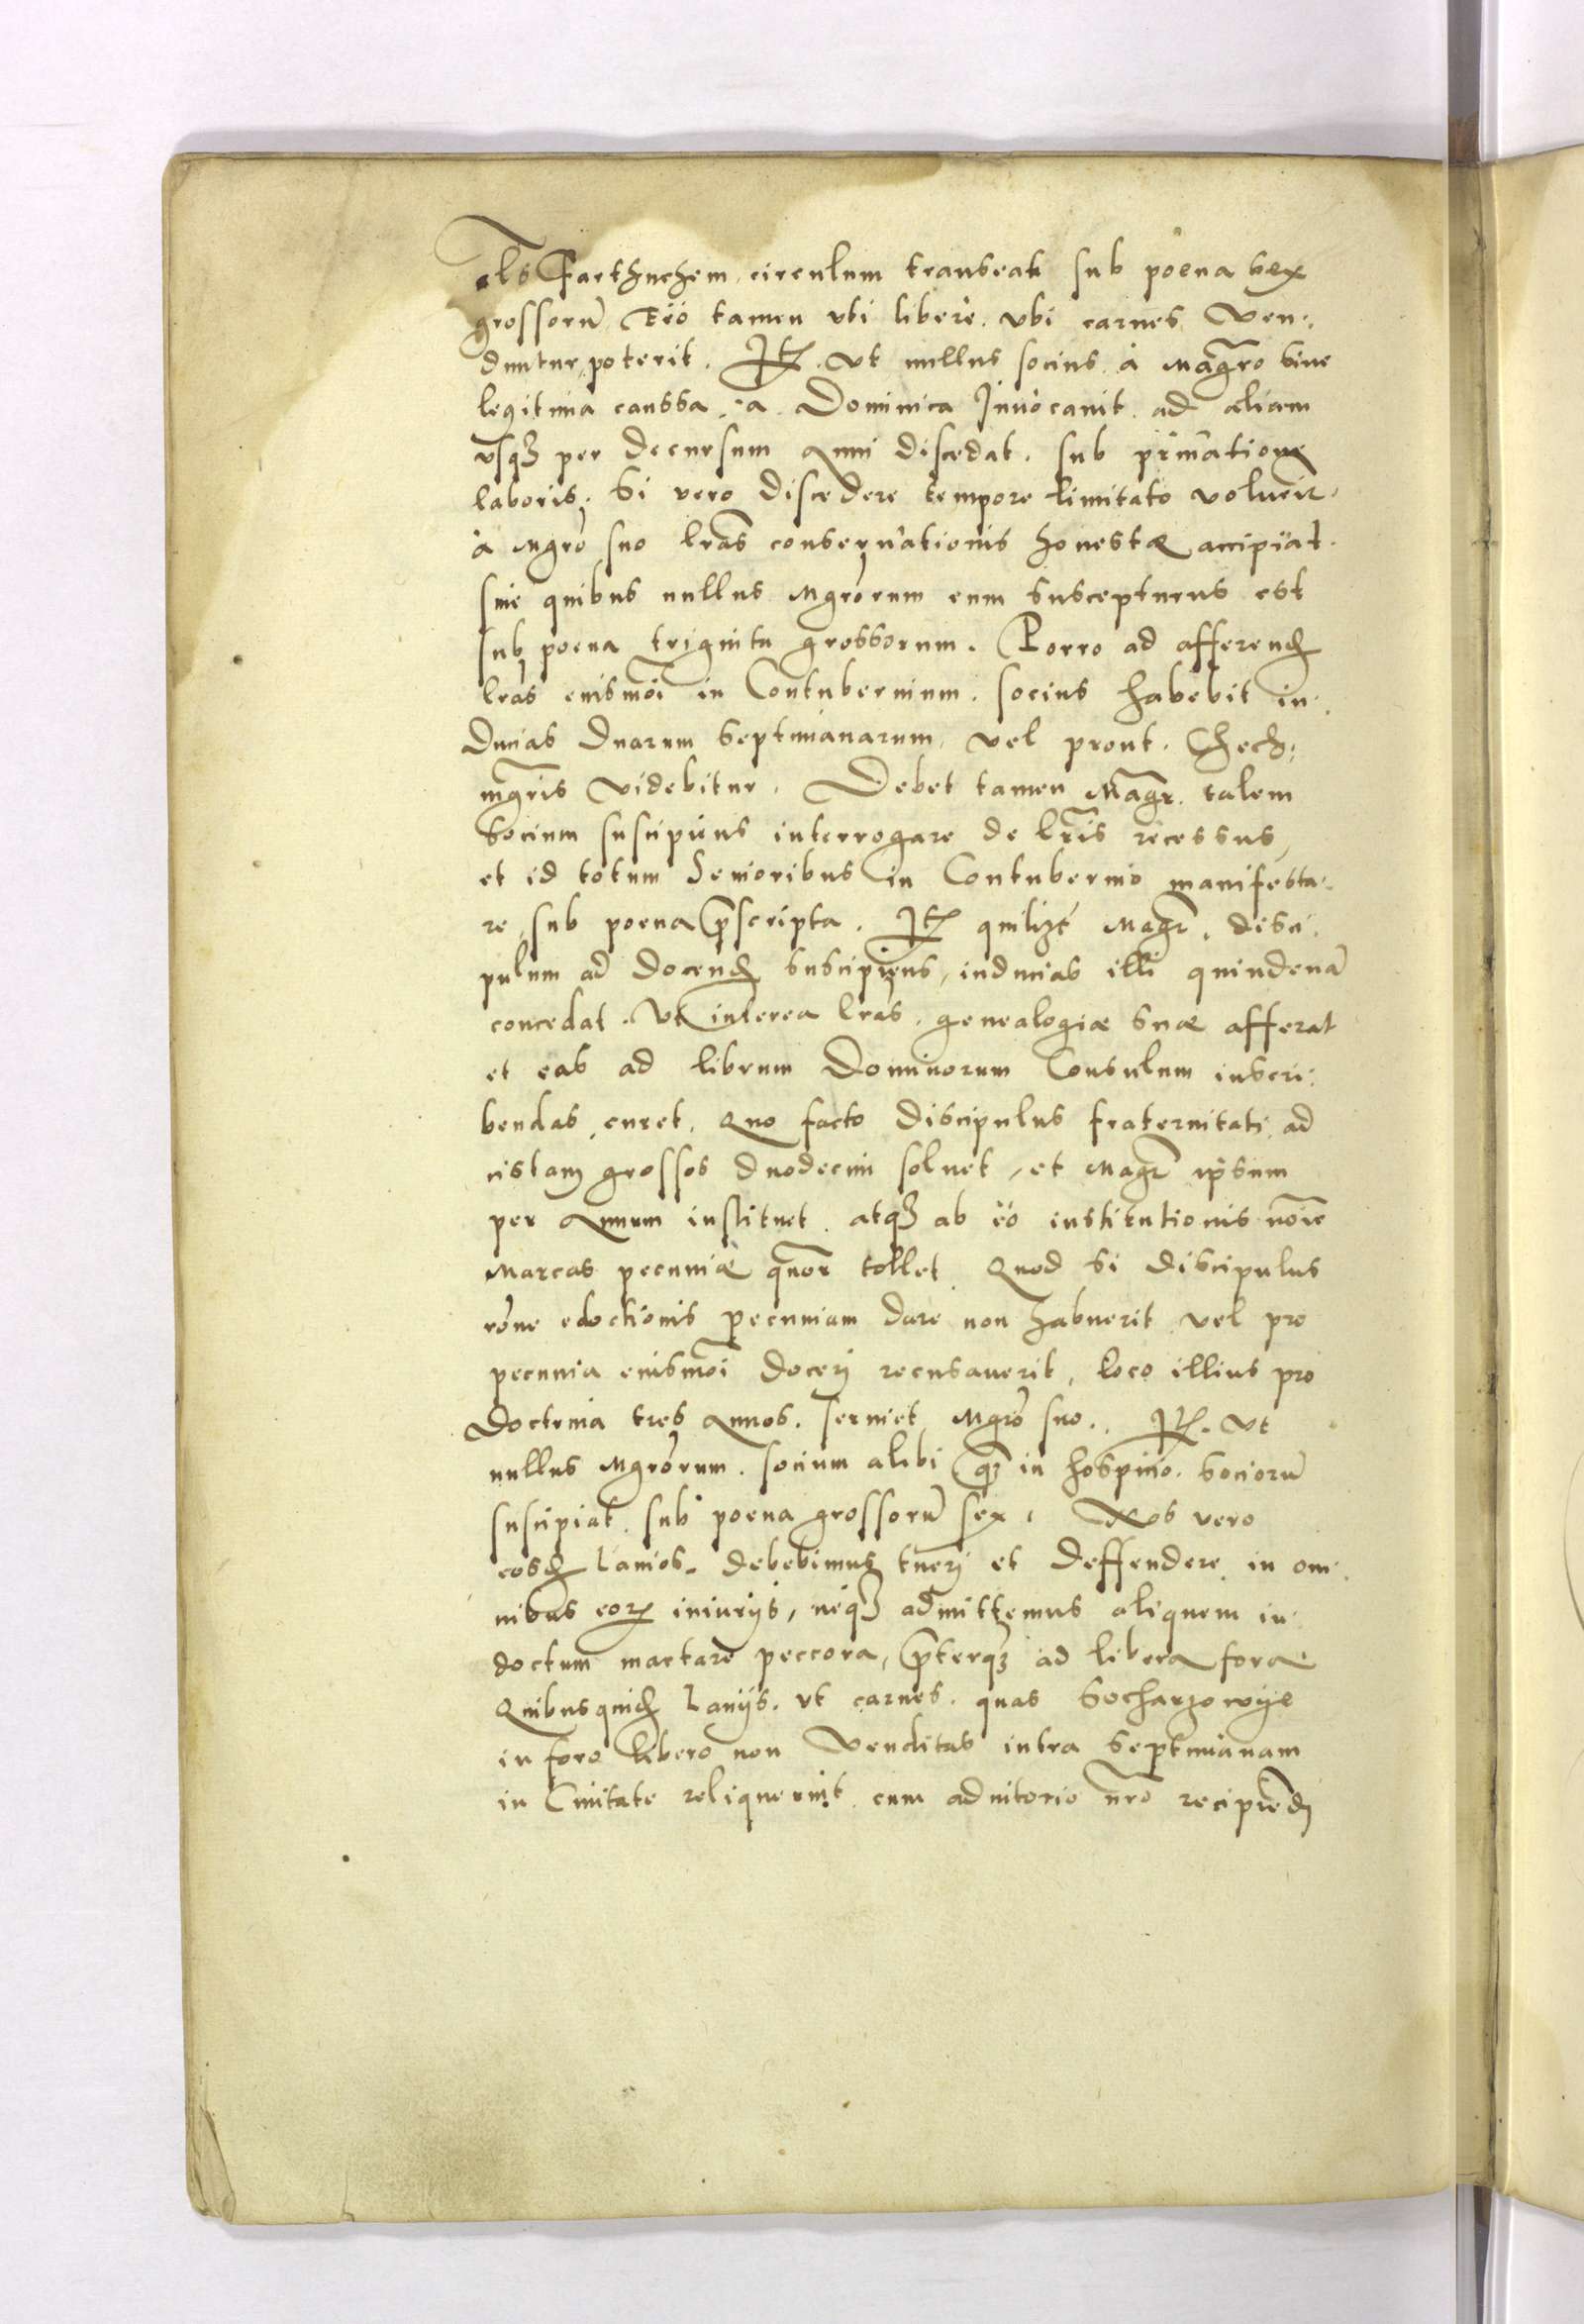 als Farthuchem circulum transeat sub poena sex
grossorũ Eó tamen vbi liberè vbi carnes Ven:
duntur poterit. Itẽ. vt nullus socius à Magr̃o sine
legitima caussa, a Dominica Inuocauit ad aliam
vsqꝫ per decursum Anni discedat. sub priuatione
laboris. Si vero discedere tempore limitato voluerit.
à Mgr̃o suo lr̃as conseruationis honestæ accipiat.
sine quibus nullus Mgr̃orum eum suscepturus est
sub poena triginta grossorum. Porro ad afferend
lr̃as eiusmõi in Contubernium. socius habebit in:
ducias duarum septimanarum, vel prout. Czech:
mgr̃is videbitur. Debet tamen Magr̃. talem
socium suscipiens interrogare de lr̃is recessus,
et id totum Senioribus in Contubernio manifesta:
re, sub poena p̃scripta. Itẽ quilibꝫt Magr̃. disci:
pulum ad docend suscipiens, inducias illi quindenã
concedat. vt interea lr̃as. genealogiæ suæ afferat
et eas ad librum Dominorum Consulum inscri:
bendas curet. Quo facto discipulus fraternitati ad
cistam grossos duodecim soluet, et Magr̃ ipsum
per Annum instituet. atqꝫ ab eó institutionis nõie
Marcas pecuniæ quãor tollet. Quod si discipulus
rõne edoctionis pecuniam dare non habuerit vel pro
pecunia eiusmõi docerj recusauerit, loco illius pro
doctrina tres Annos. seruiet Mgr̃o suo. Itẽ. Vt
nullus Mgr̃orum. socium alibi qꝫ̃ in hospicio. sociorũ
suscipiat sub poena grossorũ sex. Nos vero
eosd Lanios. debebimus tuerj et deffendere in om:
nibus eoꝝ iniurijs, neqꝫ admittemus aliquem in:
doctum mactare peccora, p̃terqꝫ ad libera fora
Quibusquid Lanijs. vt carnes. quas Sochaczowije
in foro libero non Venditas intra septimanam
in Ciuitate reliquerint cum adiutorio nr̃o recipiend